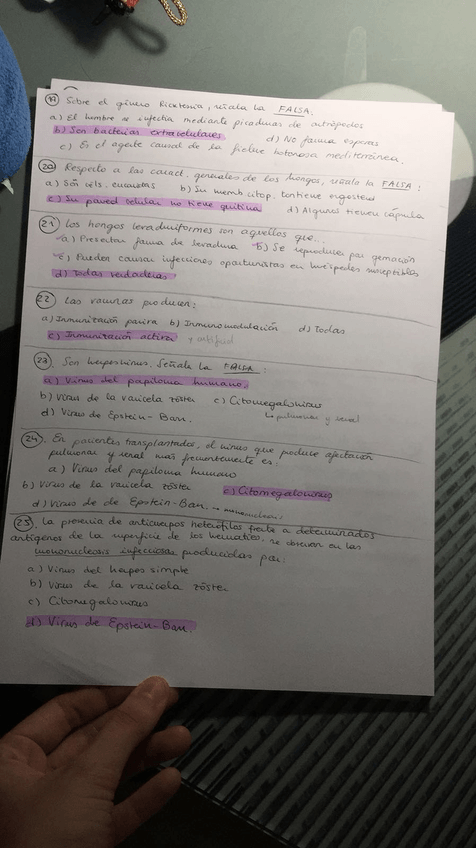 19 Sobre el género Rickettsia, señala la FALSA.
a) El hombre se infecta mediante picaduras de artrópodos
b) Son bacterias extracelulares d) No forma esporas
c) Es el agente causal de la fiebre botonosa mediterránea.
20 Respecto a las caract. generales de los hongos, señala la FALSA:
a) Son céls. eucariotas b) Su memb. citop. contiene ergosterol
c) Su pared celular no tiene quitina d) Algunos tienen cápsula
21 Los hongos levaduriformes son aquellos que...
a) Presentan forma de levadura b) Se reproducen por gemación
c) Pueden causar infecciones oportunistas en huéspedes susceptibles
d) Todas verdaderas
22 Las vacunas producen:
a) Inmunización pasiva b) Inmunomodulación d) Todas
c) Inmunización activa
23. Son herpesvirus. Señala la FALSA:
a) Virus del papiloma humano.
b) Virus de la varicela zóster c) Citomegalovirus
d) Virus de Epstein-Barr. ↳ pulmonar y renal
24. En pacientes transplantados, el virus que produce afectación
pulmonar y renal más frecuentemente es:
a) Virus del papiloma humano
b) Virus de la varicela zóster c) Citomegalovirus
d) Virus de de Epstein-Barr. → mononucleosis
25. La presencia de anticuerpos heterófilos frente a determinados
antígenos de la superficie de los hematíes, se observa en las
mononucleosis infecciosas producidas por:
a) Virus del herpes simple
b) Virus de la varicela zóster
c) Citomegalovirus
d) Virus de Epstein-Barr.